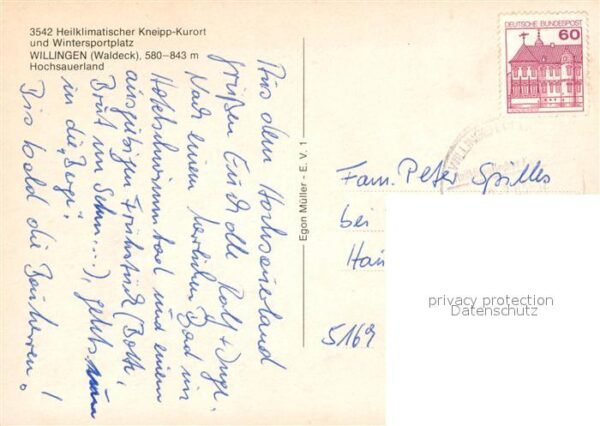 3542 Heilklimatischer Kneipp-Kurort
und Wintersportplatz
WILLINGEN (Waldeck), 580–843 m
Hochsauerland
DEUTSCHE BUNDESPOST
60
WILLINGEN
Aus dem Hochsauerland
grüßen Euch alle Rolf + Inge.
Nach einem herrlichen Bad im
Hotelschwimmbad und einem
ausgiebigen Frühstück (
Brut im ), gehts nun
in die „Berge".
Bis bald die Bauherren!
Egon Müller - E. V. 1
Fam. Peter Spilles
bei
5169
privacy protection
Datenschutz